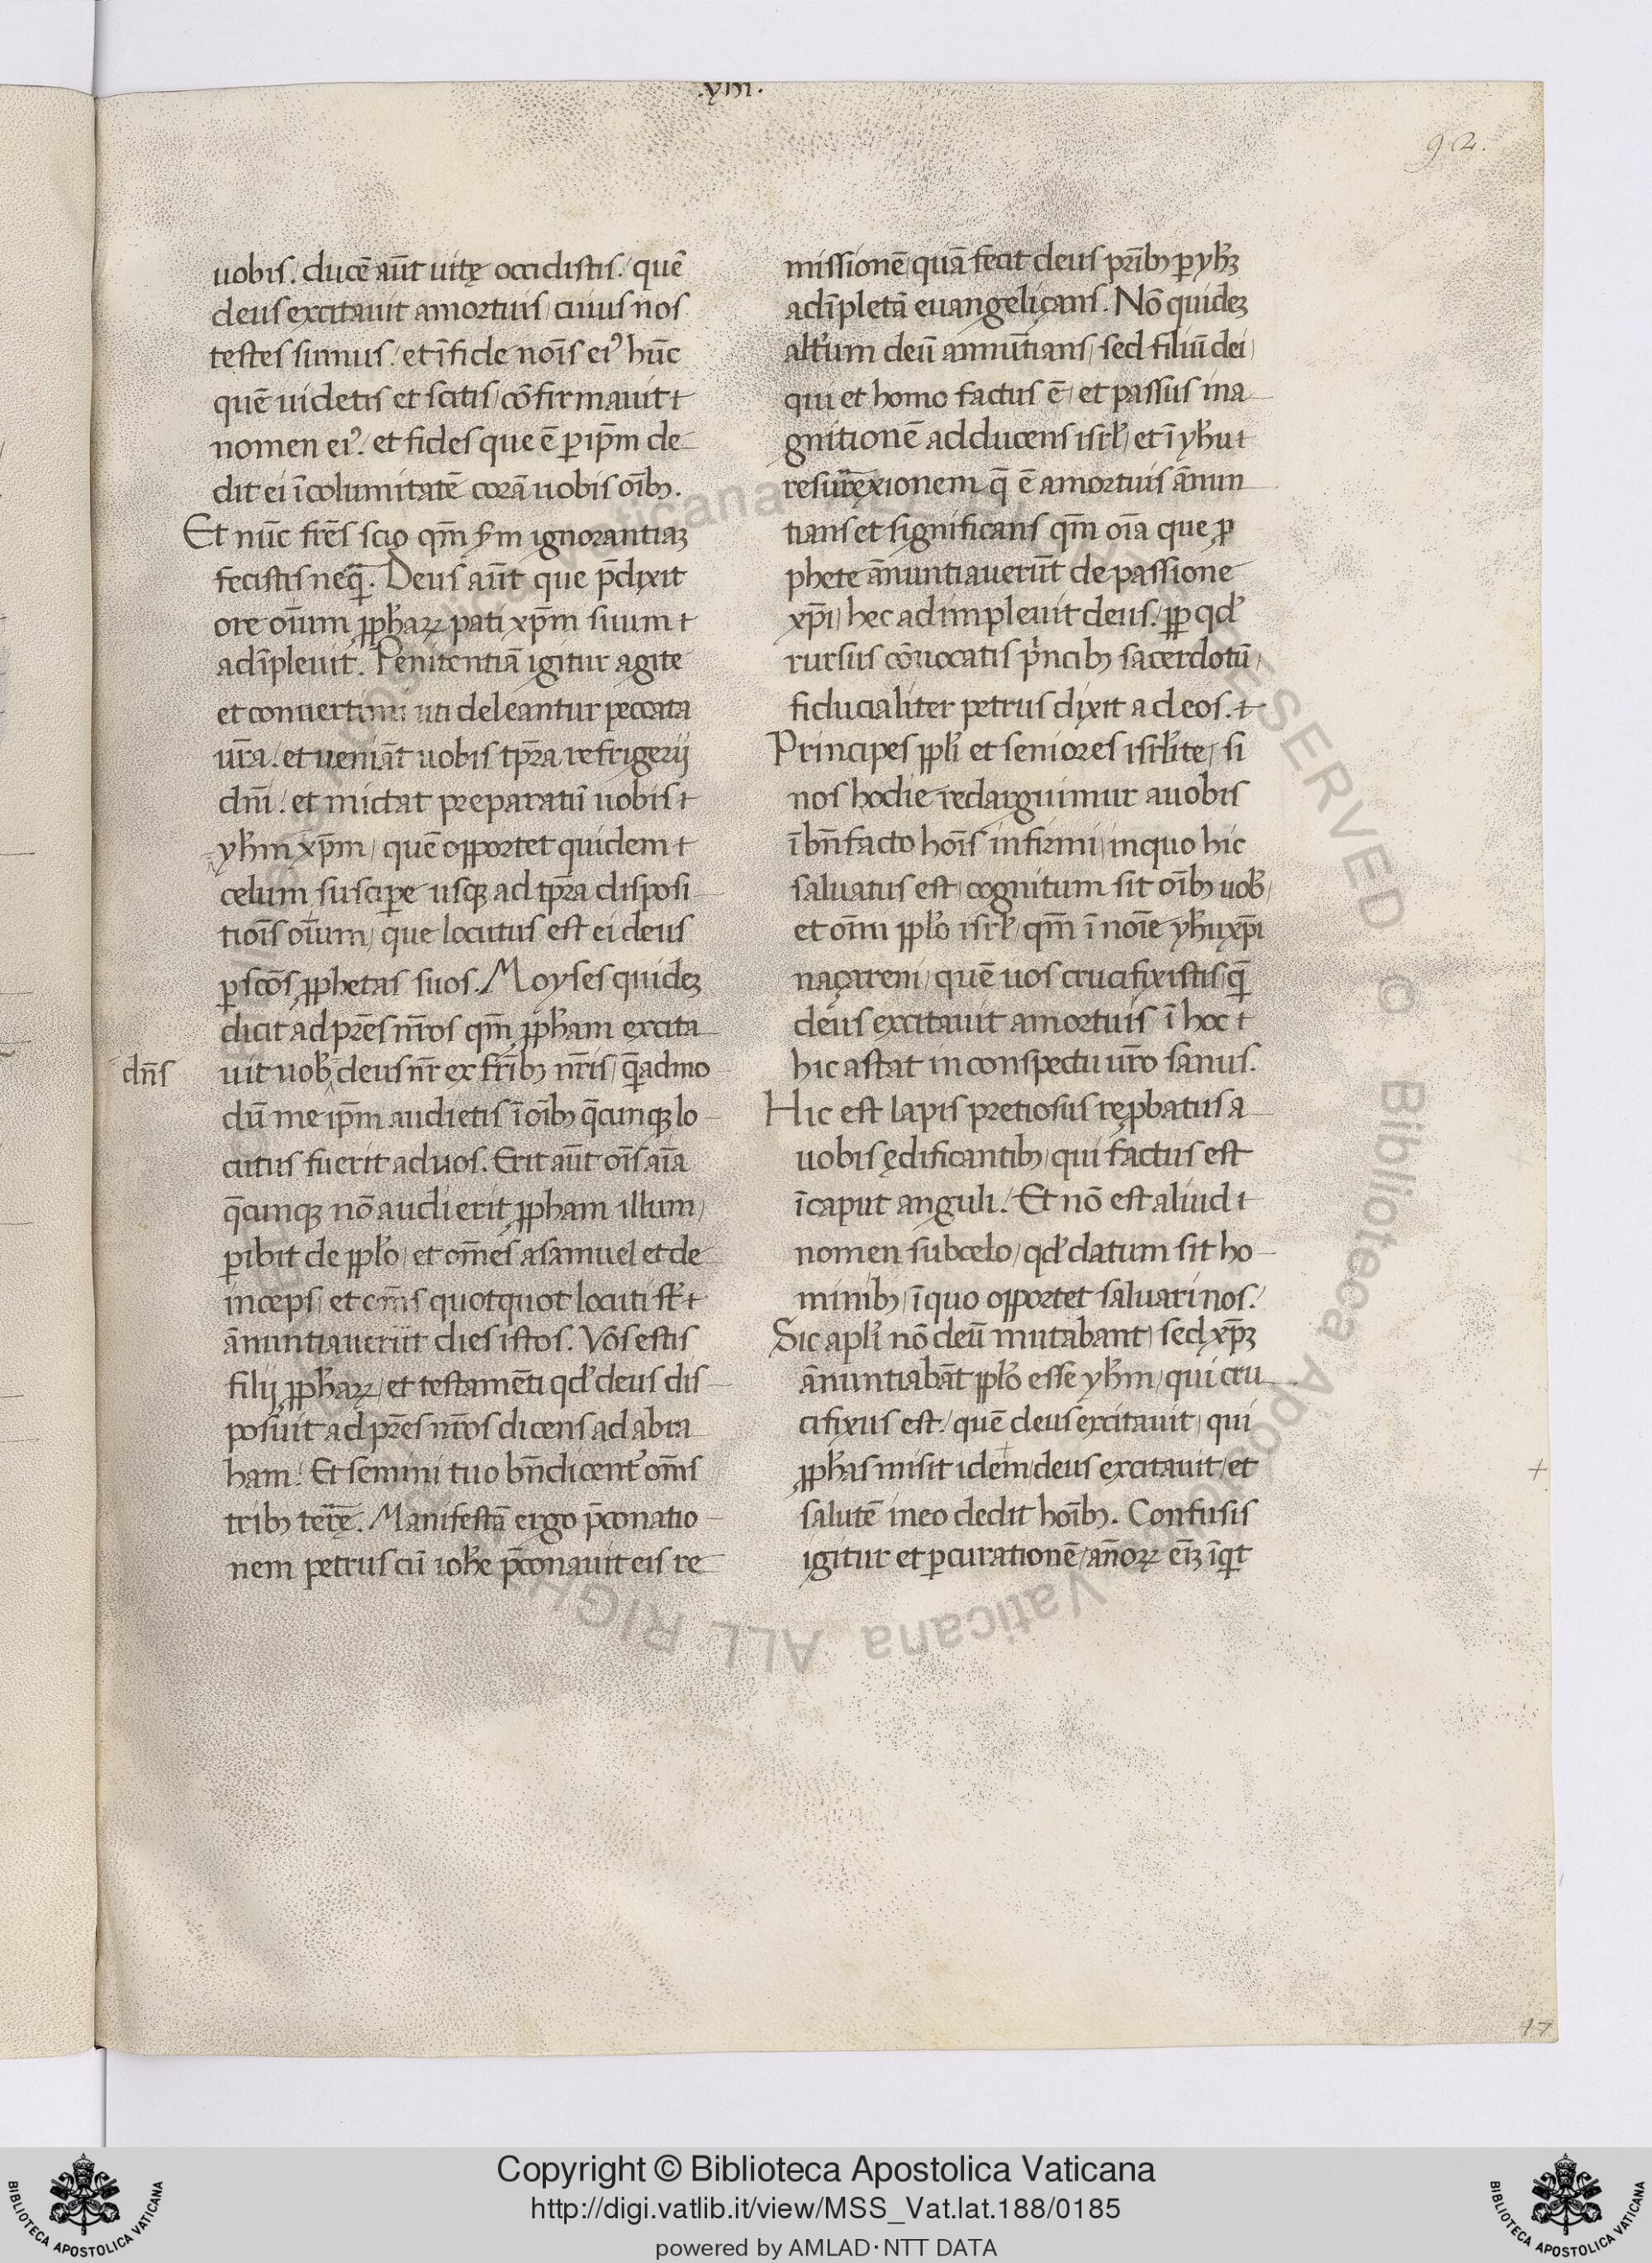 .xiii.
92.
uobis. ducē aūt uitę occidistis. quē
deus excitauit amortuis, cuius nos
testes sumus. et ī fide noīs ei᾽ hūc
quē uidetis et scitis, cōfirmauit t
nomen ei᾽. et fides que ē ꝑ ip̄m de
dit ei īcolumitatē corā uobis oīb;.
Et nūc fr̄es scio qm̄ ẜm ignorantiaꝫ
fecistis neq̄. Deus aūt que p̄dixit
ore oīum ꝓph̄aꝝ pati xp̄m suum t
adīpleuit. Penitentiā igitur agite
et conuertimi uti deleantur peccata
ur̄a. et ueniāt uobis tp̄ra refrigerij
dn̄i. et mictat preparatū uobis t
yh̄m xp̄m, quē opportet quidem t
celum suscipe usqꝫ ad tp̄ra disposi
tiōis oīum, que locutus est ei deus
ꝑ scōs ꝓphetas suos. Moyses quideꝫ
dicit ad pr̄es nr̄os qm̄ ꝓph̄am excita
dn̄s
uit uob̄ deus nr̄ ex fr̄ib; nr̄is, q̄admo
dū me ip̄m audietis ī oīb; q̄cunqꝫ lo
cutus fuerit aduos. Erit aūt oīs aīa
q̄cunqꝫ nō audierit ꝓpham illum,
ꝑibit de ppl̄o, et om̄es asamuel et de
inceps, et om̄s quotquot locuti st̄ t
ānuntiauerūt dies istos. Vōs estis
filij ꝓph̄aꝝ, et testamēti qd̄ deus dis
posuit ad pr̄es nr̄os dicens ad abra
ham. Et semini tuo bn̄dicent᾽ om̄s
trib; terr̄ę. Manifestā ergo p̄conatio
nem petrus cū ioh̄e p̄conauit eis re
missionē, quā fecit deus pr̄ib; ꝑ yh̄ꝫ
adīpletā euangeliçans. Nō quideꝫ
alt̄um deū annūtians, sed filiū dei,
qui et homo factus ē, et passus in a
gnitionē adducens isrl̄, et ī yh̄u t
resurr̄exionem q̄ ē amortuis ānun
tians et significans qm̄ oīa que ꝓ
phete ānuntiauerūt de passione
xp̄i, hec adimpleuit deus. ꝓp qd̄
rursus cōuocatis pͥncib; sacerdotū,
fiducialiter petrus dixit ad eos. t
Principes ppl̄i et seniores isrl̄ite, si
nos hodie redarguimur auobis
ī bn̄facto hoīs infirmi, in quo hic
saluatus est, cognitum sit oīb; uob̄,
et om̄i ppl̄o isrl̄, qm̄ ī noīe yh̄u xp̄i
naçareni, quē uos crucifixistis, q̄
deus excitauit amortuis ī hoc t
hic astat in conspectu ur̄o sanus.
Hic est lapis pretiosus reꝓbatus a
uobis ędificantib;, qui factus est
ī caput anguli. Et nō est aliud t
nomen sub celo, qd̄ datum sit ho
minib;, ī quo opportet saluari nos.
Sic apl̄i nō deū mutabant, sed xp̄ꝫ
ānuntiabāt ppl̄o esse yh̄m, qui cru
cifixus est. quē deus excitauit, qui
ꝓph̄as misit idem deus excitauit, et
salutē in eo dedit hoīb;. Confusis
igitur et ꝑ curationē, an̄oꝝ em̄ꝫ īqt̄
17
Copyright © Biblioteca Apostolica Vaticana
http://digi.vatlib.it/view/MSS_Vat.lat.188/0185
powered by AMLAD·NTT DATA
BIBLIOTECA APOSTOLICA VATICANA
BIBLIOTECA APOSTOLICA VATICANA